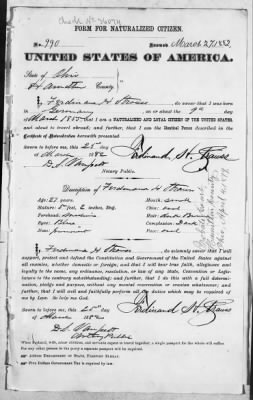 FORM FOR NATURALIZED CITIZEN.
No. 990 Issued March 27, 1882
UNITED STATES OF AMERICA.
State of Ohio
Hamilton County
I, Ferdinand H. Strauss, do swear that I was born
in Germany, on or about the 9th day
of March 1855; that I am a NATURALIZED AND LOYAL CITIZEN OF THE UNITED STATES,
and about to travel abroad; and further, that I am the Identical Person described in the
Certificate of Naturalization herewith presented.
Sworn to before me, this 25th day
of March 1882 Ferdinand H. Strauss
Notary Public.
Description of Ferdinand H. Strauss
Age: 27 years. Mouth: small
Stature: 5 feet, 2 inches, Eng. Chin: oval
Forehead: Hair: Dark Brown
Eyes: Blue Complexion: Dark
Nose: prominent Face: oval
I, Ferdinand H. Strauss, do solemnly swear that I will
support, protect and defend the Constitution and Government of the United States against
all enemies, whether domestic or foreign; and that I will bear true faith, allegiance and
loyalty to the same, any ordinance, resolution, or law of any State, Convention or Legis-
lature to the contrary notwithstanding; and further, that I do this with a full determi-
nation, pledge and purpose, without any mental reservation or evasion whatever; and
further, that I will well and faithfully perform all the duties which may be required of
me by law. So help me God.
Sworn to before me, this 25th day
of March 1882 Ferdinand H. Strauss
Notary Public
When husband, wife, minor children, and servants expect to travel together, a single passport for the whole will suffice.
For any other person in the party a separate passport will be required.
Address Department of State, Passport Bureau.
Five Dollars Government Tax is required by law.